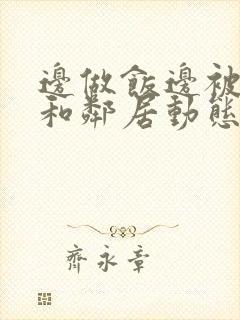 邊做飯邊被
和鄰居動態
齊永章